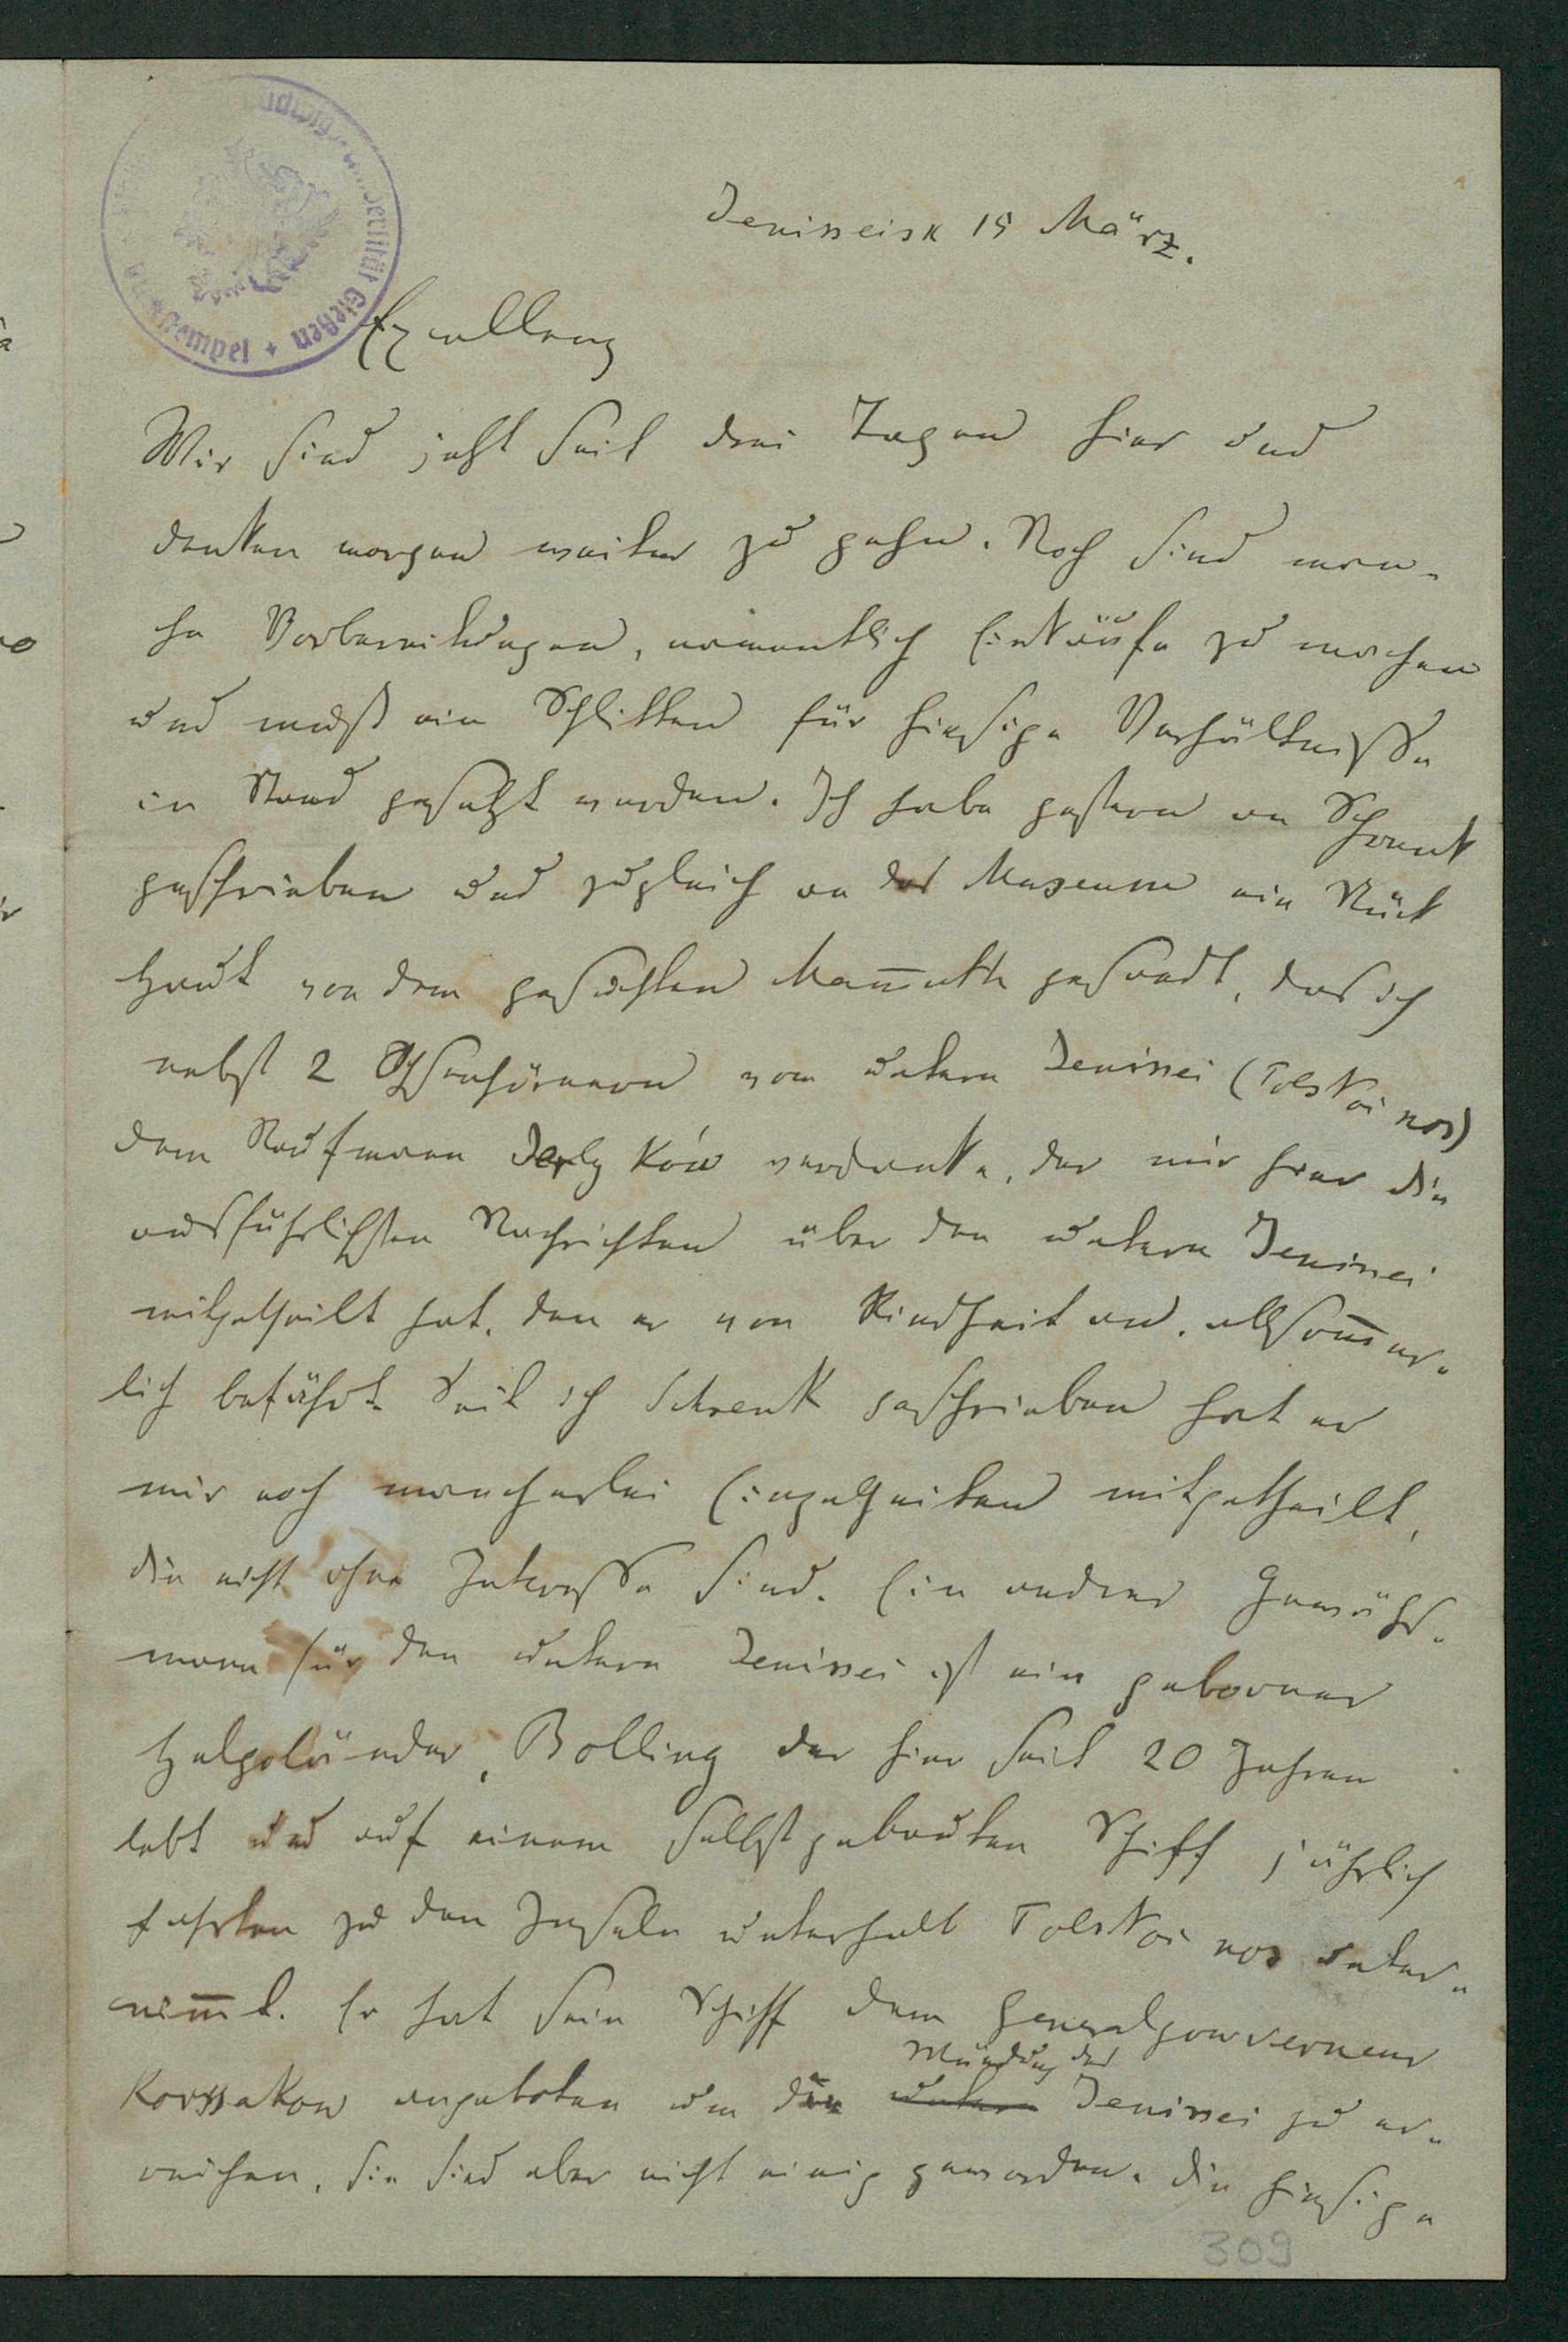 Jenisseisk 15 März.
Excellenz
Wir sind jetzt seit drei Tagen hier und
denken morgen weiter zu gehn. Noch sind man-
che Vorbereitungen, namentlich Einkäufe zu machen
und muß ein Schlitten für hiesige Verhältnisse
in Stand gesetzt werden. Ich habe gestern an Schrenk
geschrieben und zugleich an das Museum ein Stück
Haut von dem gesuchten Mam̅uth gesandt, das ich
nebst 2 Ochsenhörnern vom untern Jenissei (Tolstoi nos)
dem Kaufmann verdanke, der mir hier die
ausführlichsten Nachrichten über den untern Jenissei
mitgetheilt hat, den er von Kindheit an, allsom̅er-
lich befährt. Seit ich Schrenk geschrieben hat er
mir noch mancherlei Einzelheiten mitgetheilt,
die nicht ohne Interesse sind. Ein andrer Gewährs-
mann für den untern Jenissei ist ein geborener
Helgoländer, Bolling der hier seit 20 Jahren
lebt und auf einem selbstgebauten Schiff jährlich
fahrten zu den Inseln unterhalb Tolstoi nos unter-
nim̅t. Er hat sein Schiff dem Generalgouverneur
Mündung des
Korssakow angeboten um die untern Jenissei zu er-
reichen, sie sind aber nicht einig geworden. Die hiesige
309
Universität Gießen